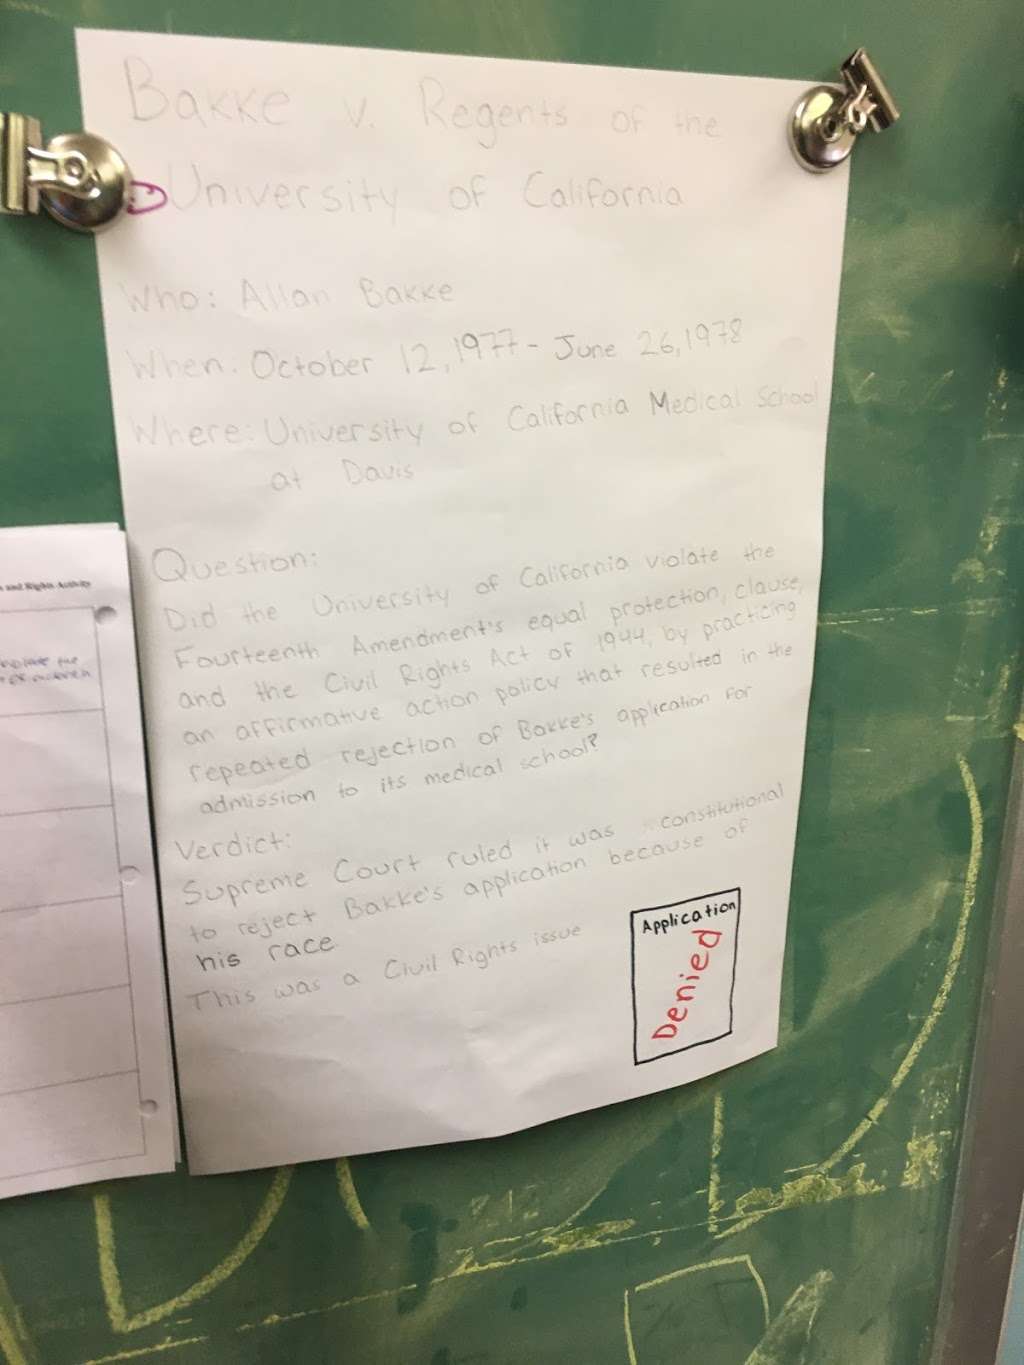 Bakke v. Regents of the
University of California
Who: Allan Bakke
When: October 12, 1977 - June 26, 1978
Where: University of California Medical School
at Davis
Question:
Did the University of California violate the
Fourteenth Amendment's equal protection, clause,
and the Civil Rights Act of 1944, by practicing
an affirmative action policy that resulted in the
repeated rejection of Bakke's application for
admission to its medical school?
Verdict:
Supreme Court ruled it was constitutional
to reject Bakke's application because of
his race
This was a Civil Rights issue
Application
Denied
and Rights Activity
violate the